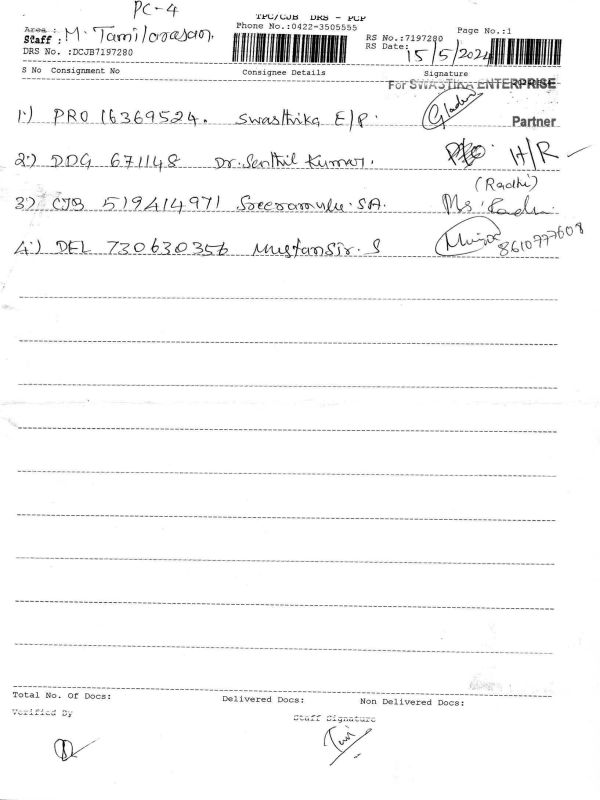 PC-4
TPC/CJB DRS - PCP
Area :
Staff : M. Tamilarasan.
Phone No.:0422-3505555
RS No.:7197280
Page No.:1
DRS No. :DCJB7197280
RS Date: 15/5/2024
S No Consignment No Consignee Details Signature
For SWASTIKA ENTERPRISE
1.) PRO 16369524. Swasthika E/P.
Partner
2.) DDG 671148 Dr. Senthil Kumar. H/R
(Radhi)
3.) CJB 519414971 Sreeramulu. S.A. Ms.
4.) DEL 730630356 Mustansir. S 8610777608
Total No. Of Docs: Delivered Docs: Non Delivered Docs:
Verified By
Staff Signature